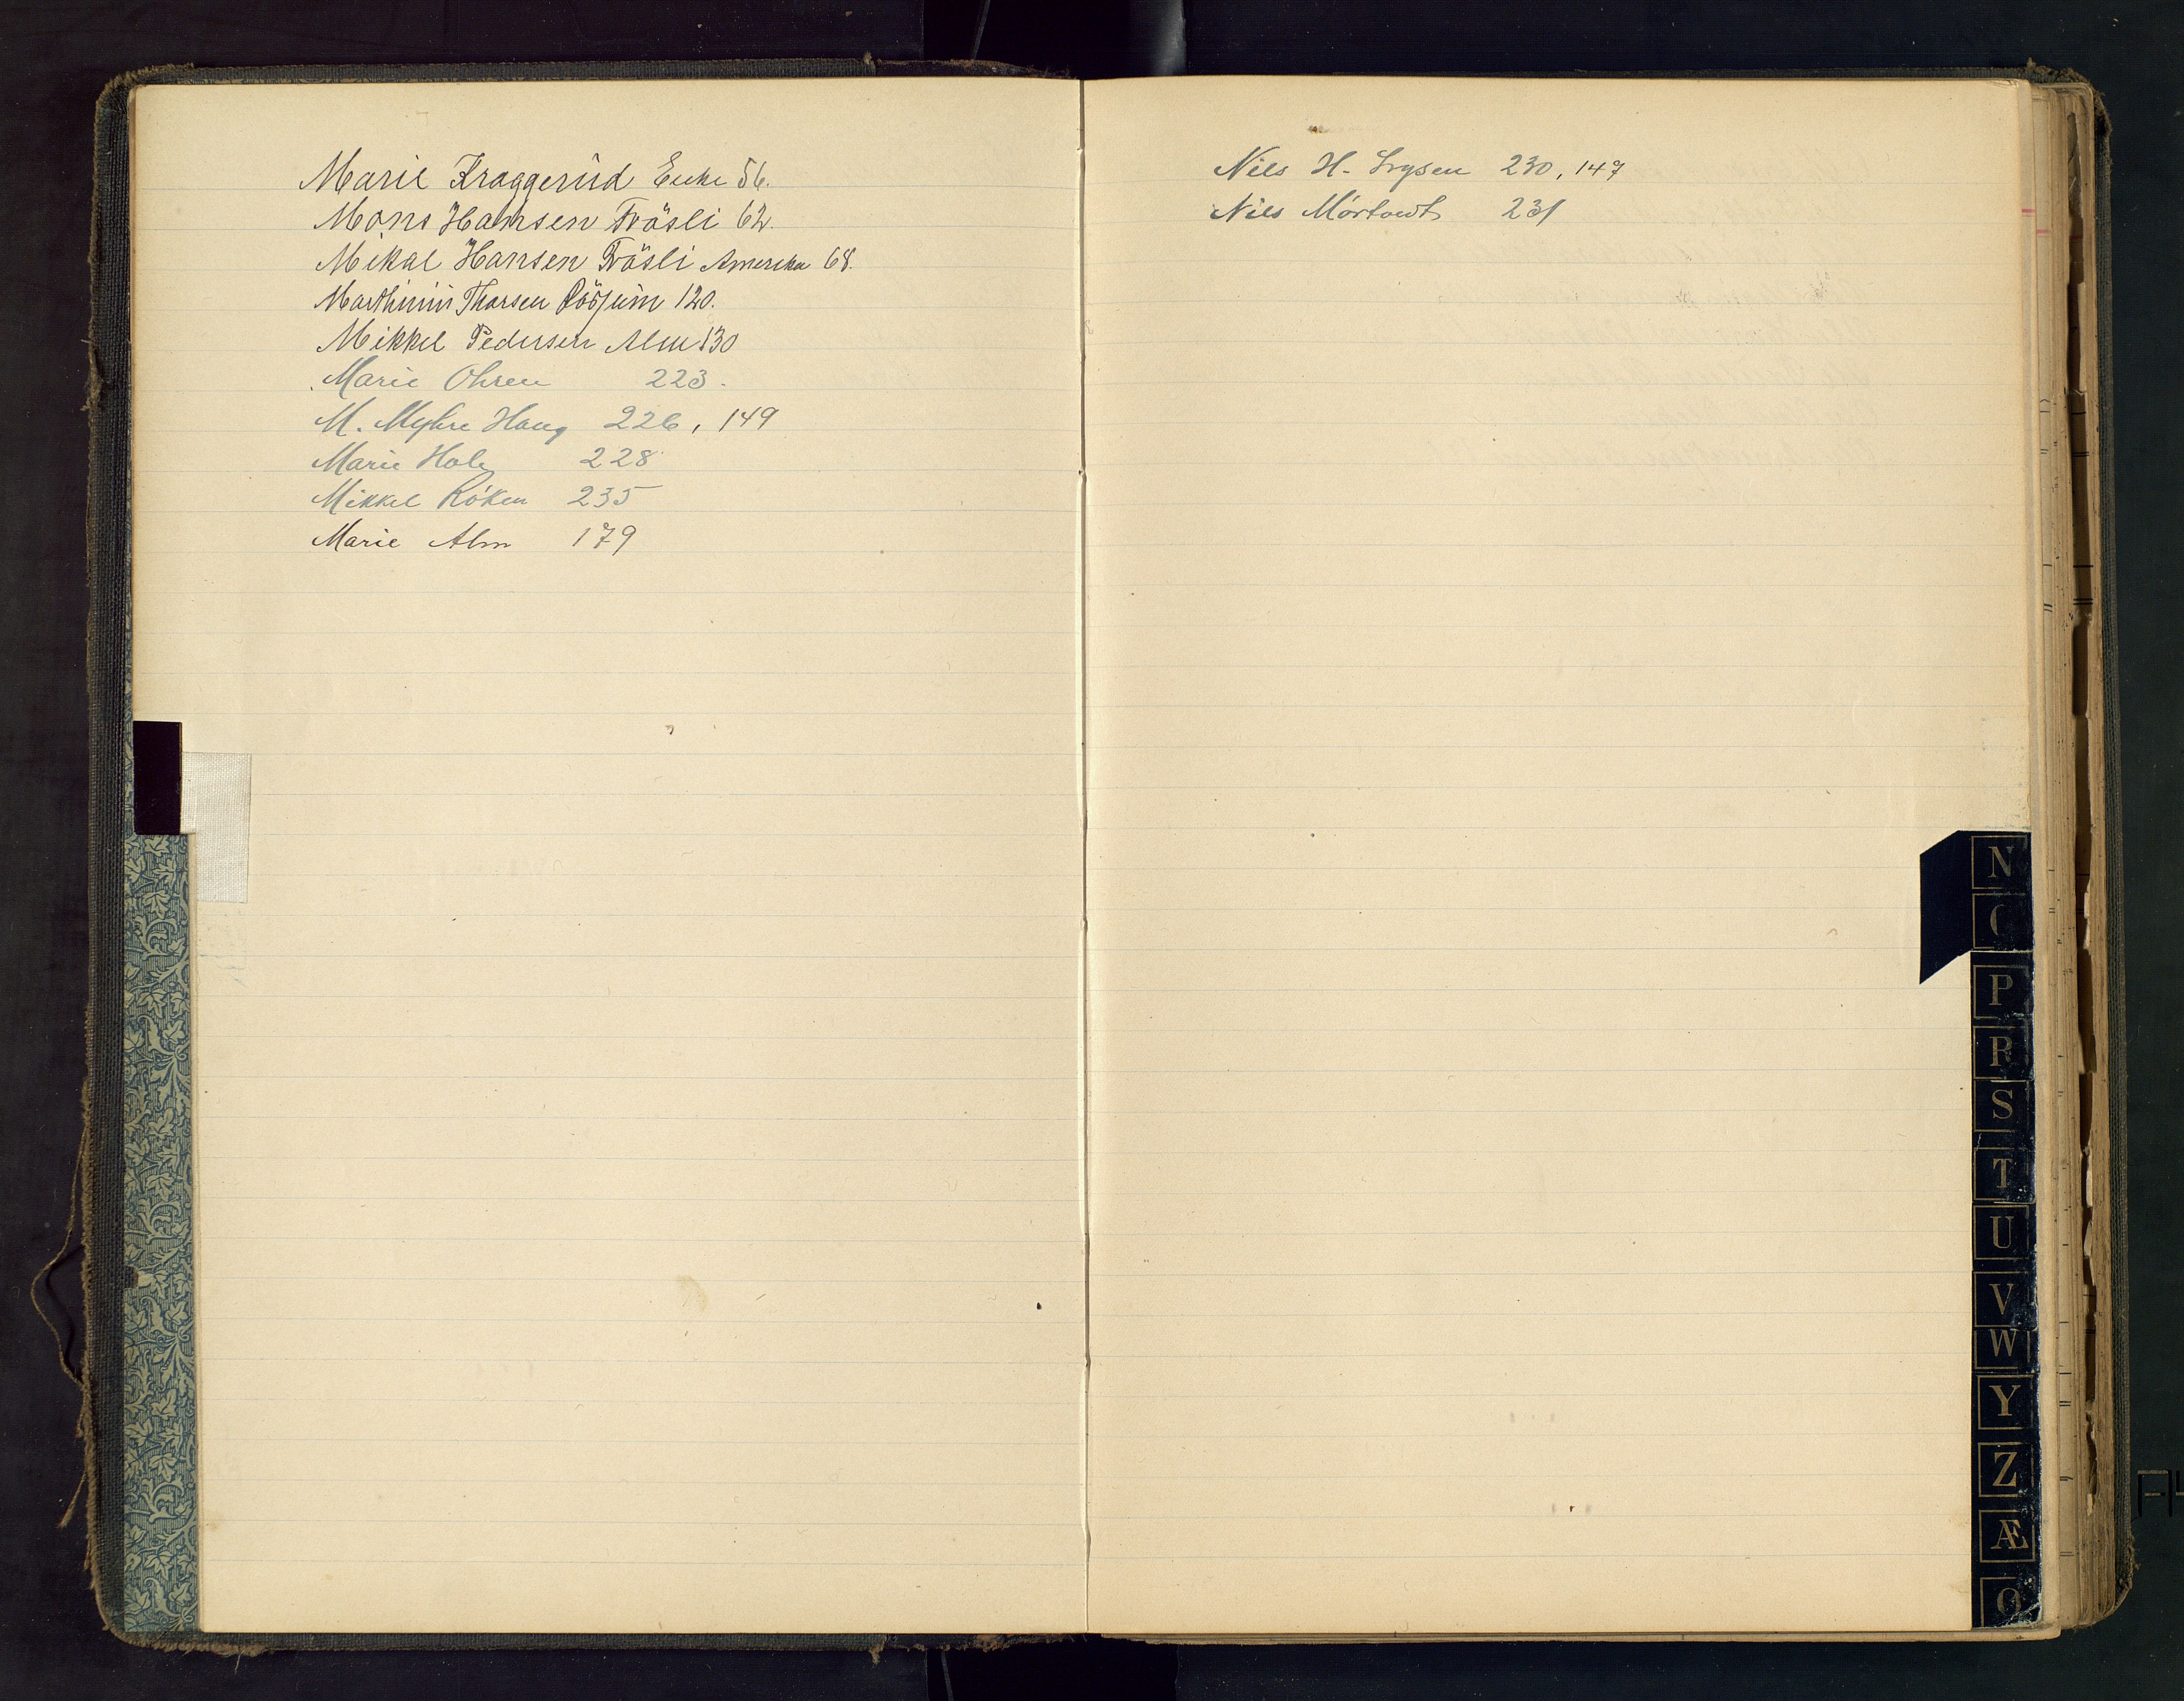 Marie Kraggerud Enke 56.
Mons Hansen Fråsli 62.
Mikal Hansen Fråsli Amerika 68.
Marthinus Thorsen 120.
Mikkel Pedersen Alm 130
Marie Ohren 223.
M. Myhre Haug 226, 149
Marie Hole 228
Mikkel Röken 235
Marie Alm 179
Nils H. 230, 147
Nils 231
N
P
R
S
T
U
V
W
Y
Z
Æ